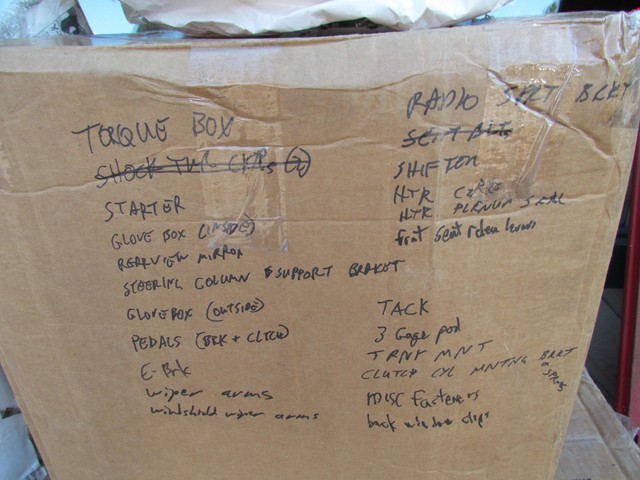 TORQUE BOX
SHOCK TWR CAPS (2)
STARTER
GLOVE BOX (INSIDE)
REARVIEW MIRROR
STEERING COLUMN & SUPPORT BRAKET
GLOVEBOX (OUTSIDE)
PEDALS (BRK + CLTCH)
E-Brk
wiper arms
windshield wiper arms
RADIO SPRT BRKT
SHIFTER
HTR
HTR PLENUM SEAL
front seat release levers
TACK
3 Gage pod
TRNY MNT
CLUTCH CYL MNTNG BRKT
MISC Fasteners
back window clips